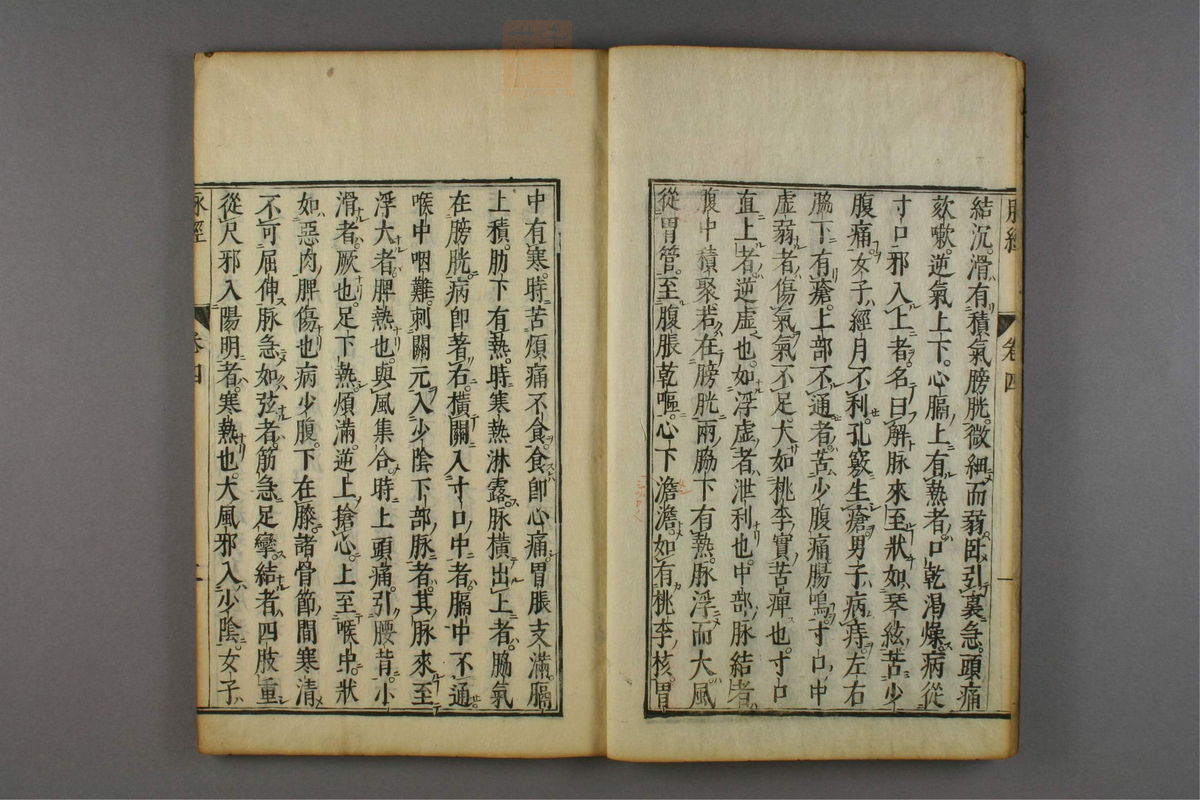 脉經
卷四
結沉滑有積氣膀胱微細而弱卧引裏急頭痛
欬嗽逆氣上下心膈上有熱者口乾渴燥病從
寸口邪入上者名曰解脉來至狀如琴絃苦少
腹痛女子經月不利孔竅生瘡男子病痔左右
脇下有瘡上部不通者苦少腹痛腸鳴寸口中
虚弱者傷氣氣不足大如桃李實苦痺也寸口
直上者逆虚也如浮虚者泄利也中部脉結者
腹中積聚若在膀胱兩脇下有熱脉浮而大風
從胃管至腹脹乾嘔心下澹澹如有桃李核胃
中有寒時苦煩痛不食食即心痛胃脹支滿膈
上積肋下有熱時寒熱淋露脉横出上者脇氣
在膀胱病即著右横關入寸口中者膈中不通
喉中咽難刺關元入少陰下部脉者其脉來至
浮大者脾熱也與風集合時上頭痛引腰背小
滑者厥也足下熱煩滿逆上搶心上至喉中狀
如惡肉脾傷也病少腹下在膝諸骨節間寒清
不可屈伸脉急如弦者筋急足攣結者四肢重
從尺邪入陽明者寒熱也大風邪入少陰女子
脉經
卷四
一